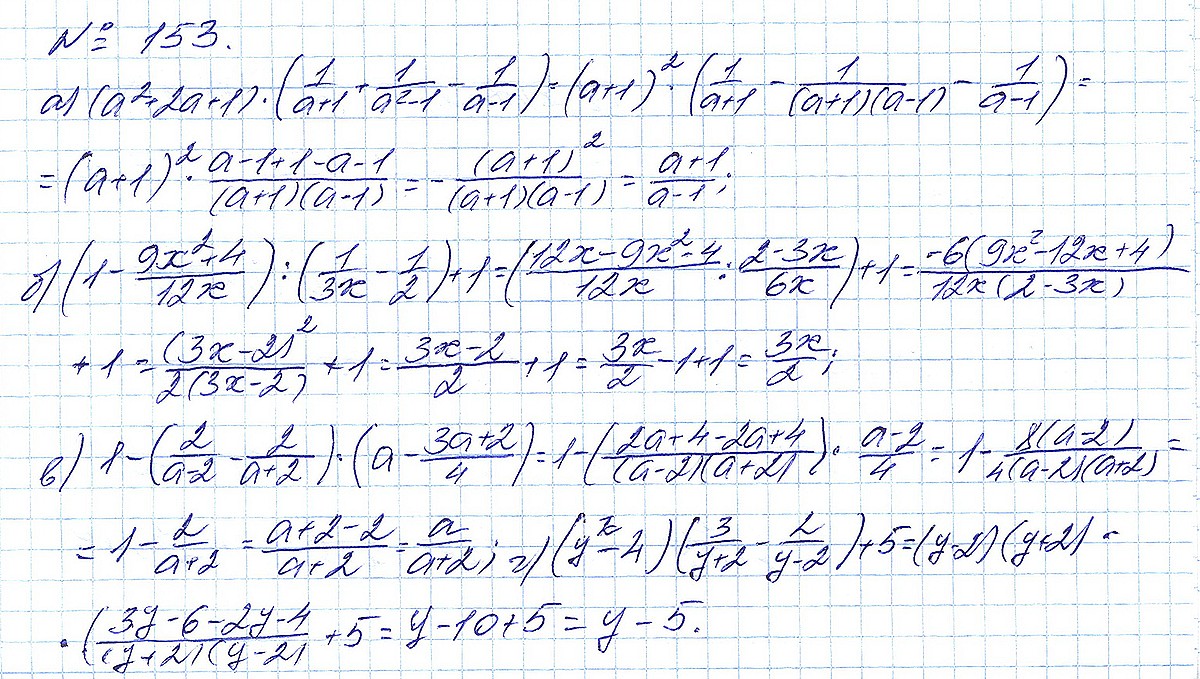 № 153.
а) (a²+2a+1)·(1/(a+1) + 1/(a²-1) - 1/(a-1)) = (a+1)²·(1/(a+1) - 1/((a+1)(a-1)) - 1/(a-1)) =
= (a+1)²·(a-1+1-a-1)/((a+1)(a-1)) = -(a+1)²/((a+1)(a-1)) = (a+1)/(a-1);
б) (1 - (9x²+4)/(12x)) : (1/(3x) - 1/2) + 1 = ((12x-9x²-4)/(12x) : (2-3x)/(6x)) + 1 = (-6(9x²-12x+4))/(12x(2-3x))
+ 1 = (3x-2)²/(2(3x-2)) + 1 = (3x-2)/2 + 1 = 3x/2 - 1 + 1 = 3x/2;
в) 1 - (2/(a-2) - 2/(a+2))·(a - (3a+2)/4) = 1 - ((2a+4-2a+4)/((a-2)(a+2)))·(a-2)/4 = 1 - 8(a-2)/(4(a-2)(a+2)) =
= 1 - 2/(a+2) = (a+2-2)/(a+2) = a/(a+2); г) (y²-4)(3/(y+2) - 2/(y-2)) + 5 = (y-2)(y+2)·
·((3y-6-2y-4)/((y+2)(y-2)) + 5 = y-10+5 = y-5.